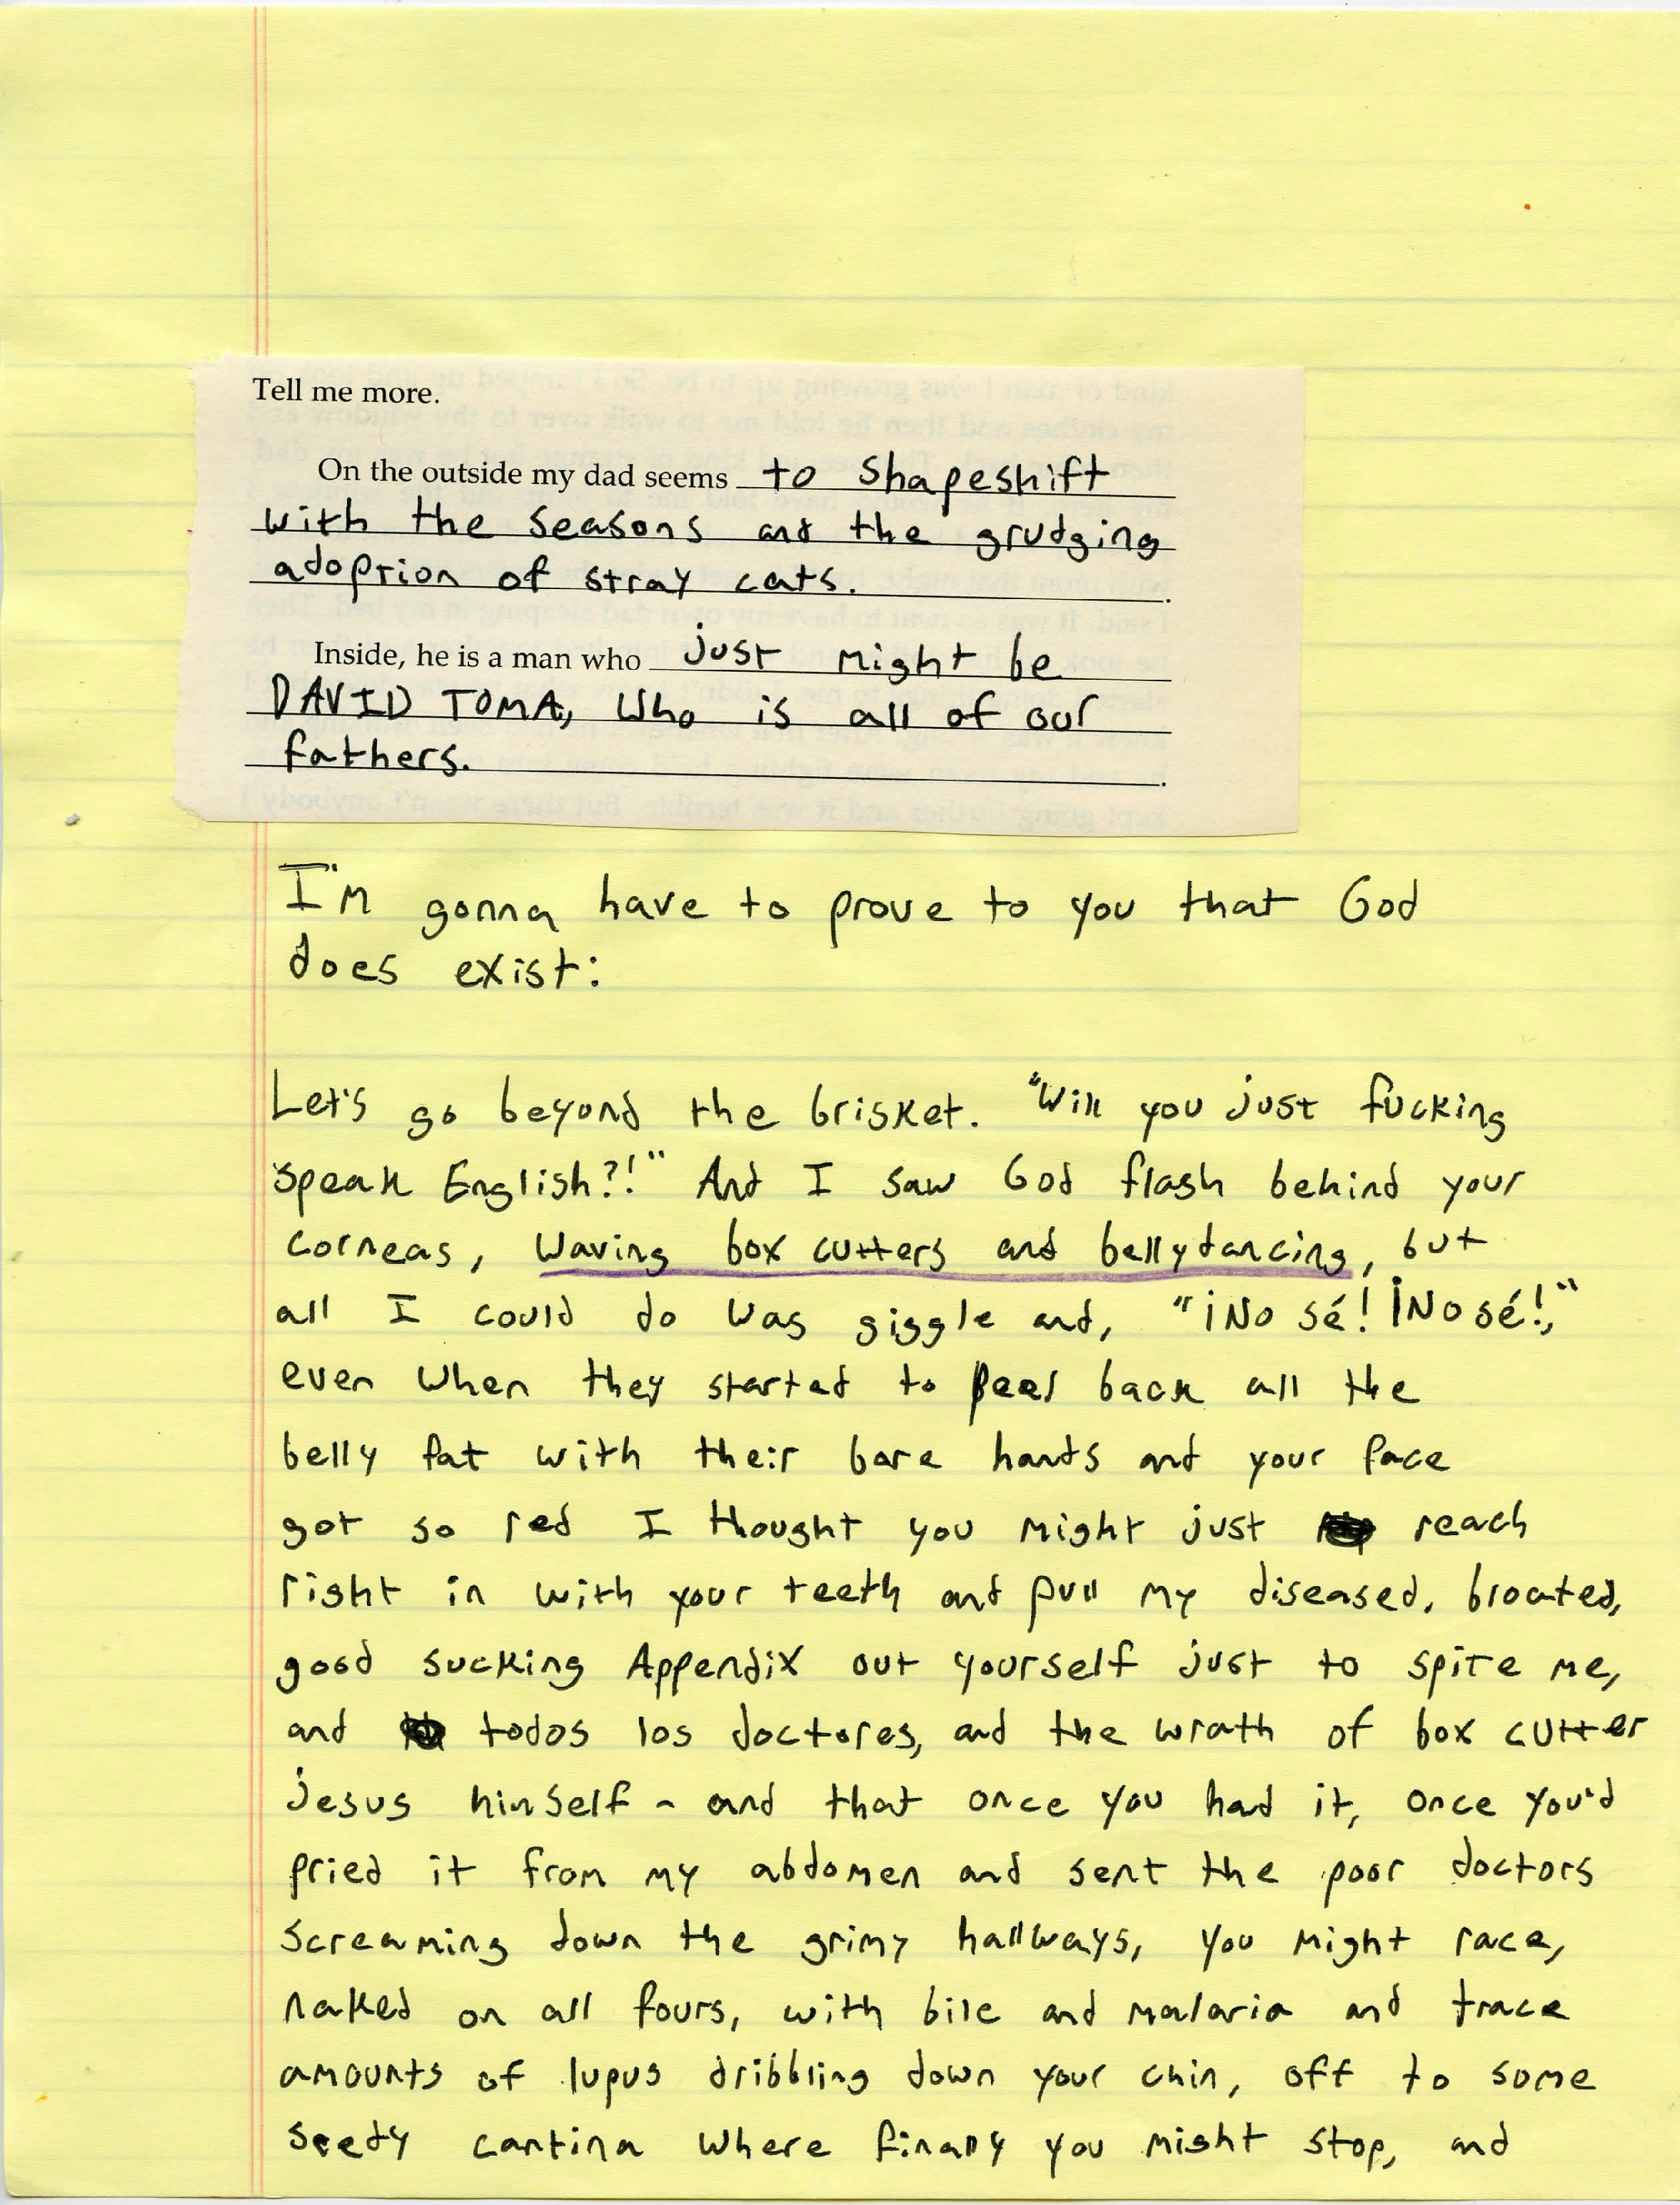 Tell me more.
On the outside my dad seems to shapeshift
with the seasons and the grudging
adoption of stray cats.
Inside, he is a man who just might be
DAVID TOMA, who is all of our
fathers.
I'm gonna have to prove to you that God
does exist:
Let's go beyond the brisket. "Will you just fucking
speak English?!" And I saw God flash behind your
corneas, waving box cutters and bellydancing, but
all I could do was giggle and, "¡No sé! ¡No sé!,"
even when they started to peel back all the
belly fat with their bare hands and your face
got so red I thought you might just reach
right in with your teeth and pull my diseased, bloated,
good sucking Appendix out yourself just to spite me,
and todos los doctores, and the wrath of box cutter
jesus himself - and that once you had it, once you'd
pried it from my abdomen and sent the poor doctors
screaming down the grimy hallways, you might race,
naked on all fours, with bile and malaria and trace
amounts of lupus dribbling down your chin, off to some
seedy cantina where finally you might stop, and